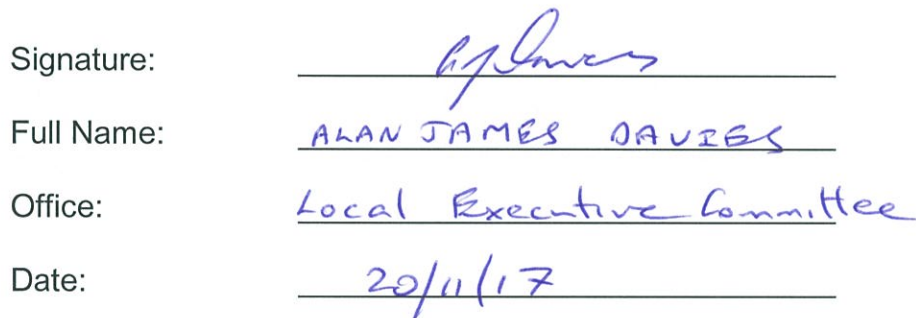 Signature: AJ Davies
Full Name: ALAN JAMES DAVIES
Office: Local Executive Committee
Date: 20/11/17